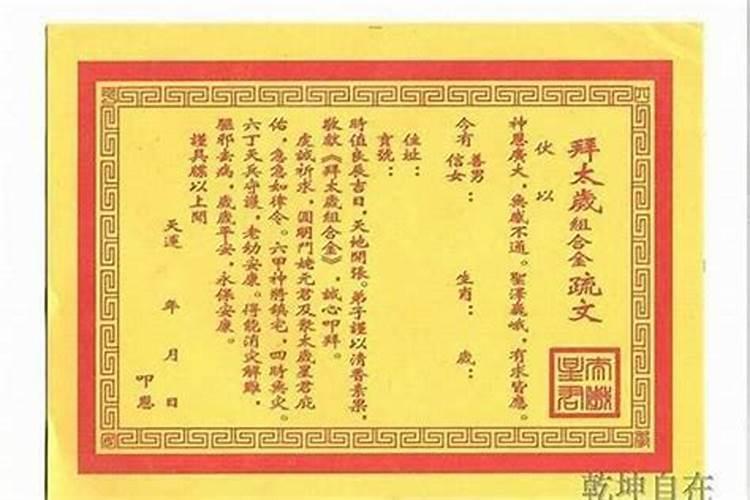 拜太歲組合金疏文
伏以
神恩廣大，無感不通。聖澤巍峨，有求皆應。
今有善男信女： 生肖： 歲：
住址：
寶號：
時值良辰吉日，天地開張。弟子謹以清香素果，
敬獻《拜太歲組合金》，誠心叩拜。
虔誠祈求，圓明門姥元君及眾太歲星君庇
佑，急急如律令。六甲神將鎮宅，四時無災。
六丁天兵守護，老幼安康。得能消災解難，
驅邪去病，歲歲平安，永保安康。
謹具牒以上聞
天運 年 月 日 叩恩
太歲星君
乾坤自在